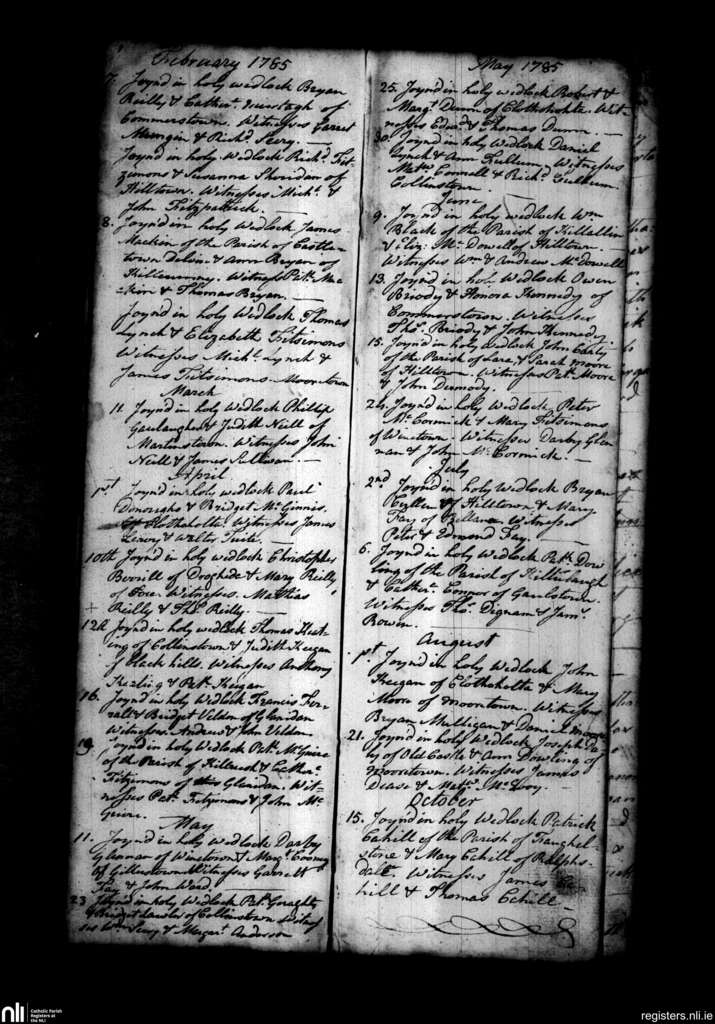 February 1785
7. Joynd in holy wedlock Bryan
Reilly & Cathn. of
Commerstown. Witnesses Garret
& Richd. Seery. —
Joynd in holy Wedlock Richd. Fit-
zimons & Susanna Sheridan of
Hilltown. Witnesses Michl. &
John Fitzpatrick. —
8. Joynd in holy wedlock James
Mackin of the Parish of Castle-
town Delvin & Ann Bryan of
Witness Patk. Mac-
kin & Thomas Bryan. —
Joynd in holy Wedlock Thomas
Lynch & Elizabeth Fitsimons
Witnesses Michl. Lynch &
James Fitsimons. Moontown
March
11. Joynd in holy Wedlock Phillip
& Judith Neill of
Martinstown. Witnesses John
Neill & James Sullivan. —
April
1st Joynd in holy wedlock Paul
Donoughs & Bridget Mc.Ginnis
of Clothekolte Witnesses James
& Walter Tuite. —
10th Joynd in holy wedlock Christopher
of Droghide & Mary Reilly
of Fore. Witnesses. Mathias
+ Reilly & Thos. Reilly. —
12th Joynd in holy wedlock Thomas Keat-
ing of Collinstown & Judith Keegan
of Black hills. Witness Anthony
Keating & Patk. Keegan
16. Joynd in holy Wedlock Francis Fer-
rall & Bridget Veldon of Glenidan
Witnesses. Andrew & John Veldon
19. Joynd in holy Wedlock Patk. McGuire
of the Parish of & Cathn.
Fitzimons of Glenidan. Wit-
nesses Pat. Fitzimons & John Mc
Guire.
May
11. Joynd in holy Wedlock Darby
Glennan of Winetown & Margt.
of Gillardstown Witnesses Garrett
Fay & John Ward
23 Joynd in holy Wedlock Patk. Geraghty
& Bridget Lawler of Collinstown Witnes
ses Wm Seery & Margart. Anderson
May 1785
25. Joynd in holy wedlock Robert &
Margt. Dunn of Clothekolte. Wit-
nesses Edwd. & Thomas Dunn. —
30. Joynd in holy Wedlock Daniel
Lynch & Ann Witnesses
Mattw Connell & Richd.
Collinstown.
June
9. Joynd in holy wedlock Wm
Black of the Parish of Killallin
& Eliz: Mc. Dowell of Hilltown.
Witnesses Wm & Andrew Mc. Dowell
13. Joynd in holy Wedlock Owen
Briody & Honora Kennedy of
Commerstown. Witnesses
Thos. Briody & John Kennedy.
15. Joynd in holy wedlock John Early
of the Parish of Lara, & Sarah Moore
of Hilltown. Witnesses Patk. Moore
& John Dermody. —
24. Joynd in holy Wedlock, Peter
Mc. Cormick & Mary Fitsimons
of Winetown. Witnesses Darby Glen-
nan & John Mc. Cormick. —
July
2nd Joynd in holy Wedlock Bryan
of Hilltown & Mary
Fay of Witnesses
Peter & Edmond Fay. —
6. Joynd in holy Wedlock Patk. Dow-
ling of the Parish of
& Cathn. Connor of Gaulstown.
Witnesses Thos. Dignam & Jams.
Bowen.
August
1st. Joynd in holy Wedlock John
Keegan of Clothekolte & Mary
Moore of Moontown. Witnesses
Bryan Mulligan & Daniel Moore
21. Joynd in holy Wedlock Joseph
of Old Castle & Ann Dowling of
Moortown. Witnesses James
Dease & Mattw. Mc. Evoy. —
October
15. Joynd in holy Wedlock Patrick
Cahill of the Parish of Taughel-
stone & Mary Cahill of Ralphs-
dale. Witnesses James Ca-
hill & Thomas Cahill —
nli
Catholic Parish
Registers at
the NLI
registers.nli.ie